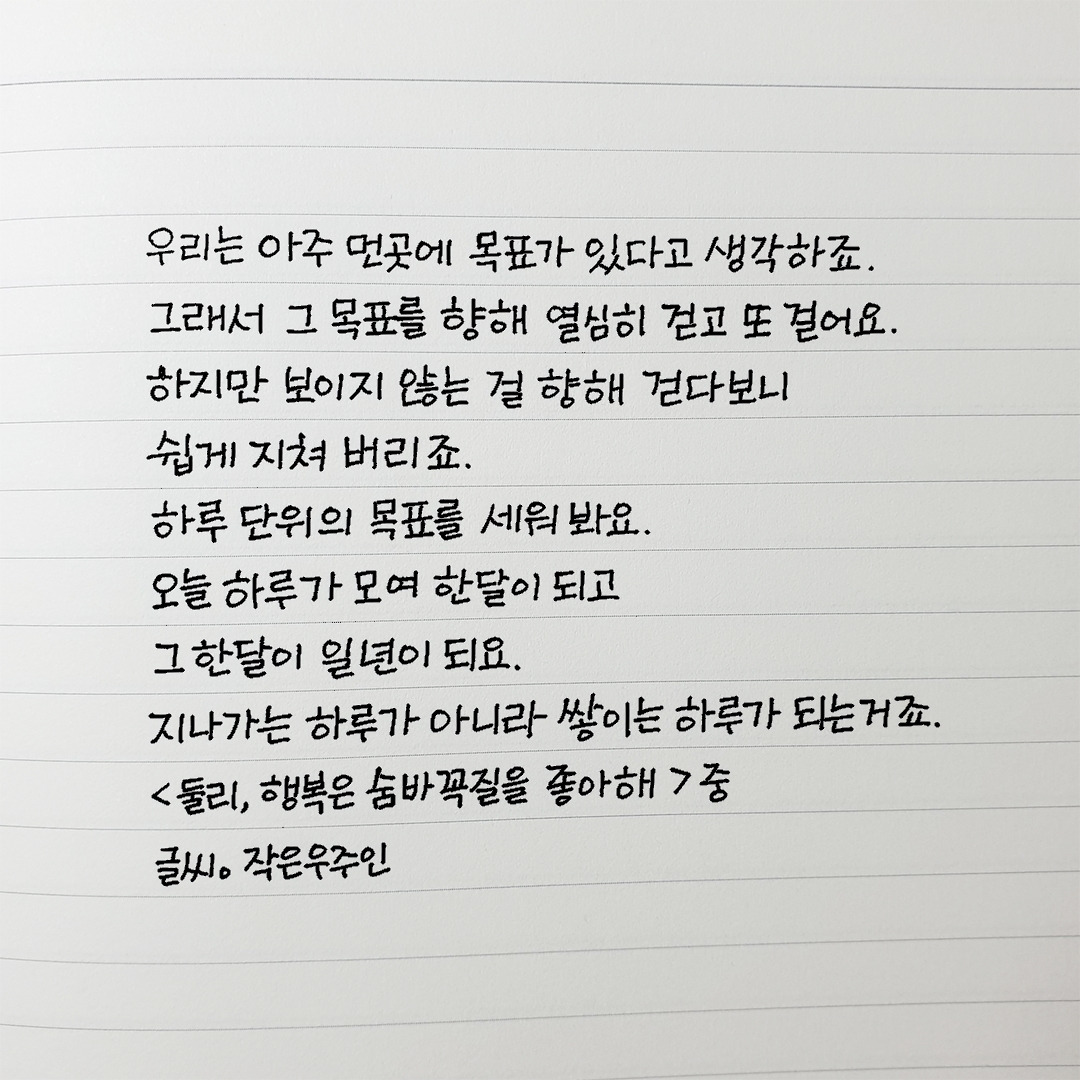 우리는 아주 먼곳에 목표가 있다고 생각하죠.
그래서 그 목표를 향해 열심히 걷고 또 걸어요.
하지만 보이지 않는 걸 향해 걷다보니
쉽게 지쳐 버리죠.
하루 단위의 목표를 세워 봐요.
오늘 하루가 모여 한달이 되고
그 한달이 일년이 되요.
지나가는 하루가 아니라 쌓이는 하루가 되는거죠.
<둘리, 행복은 숨바꼭질을 좋아해 > 중
글씨。작은우주인